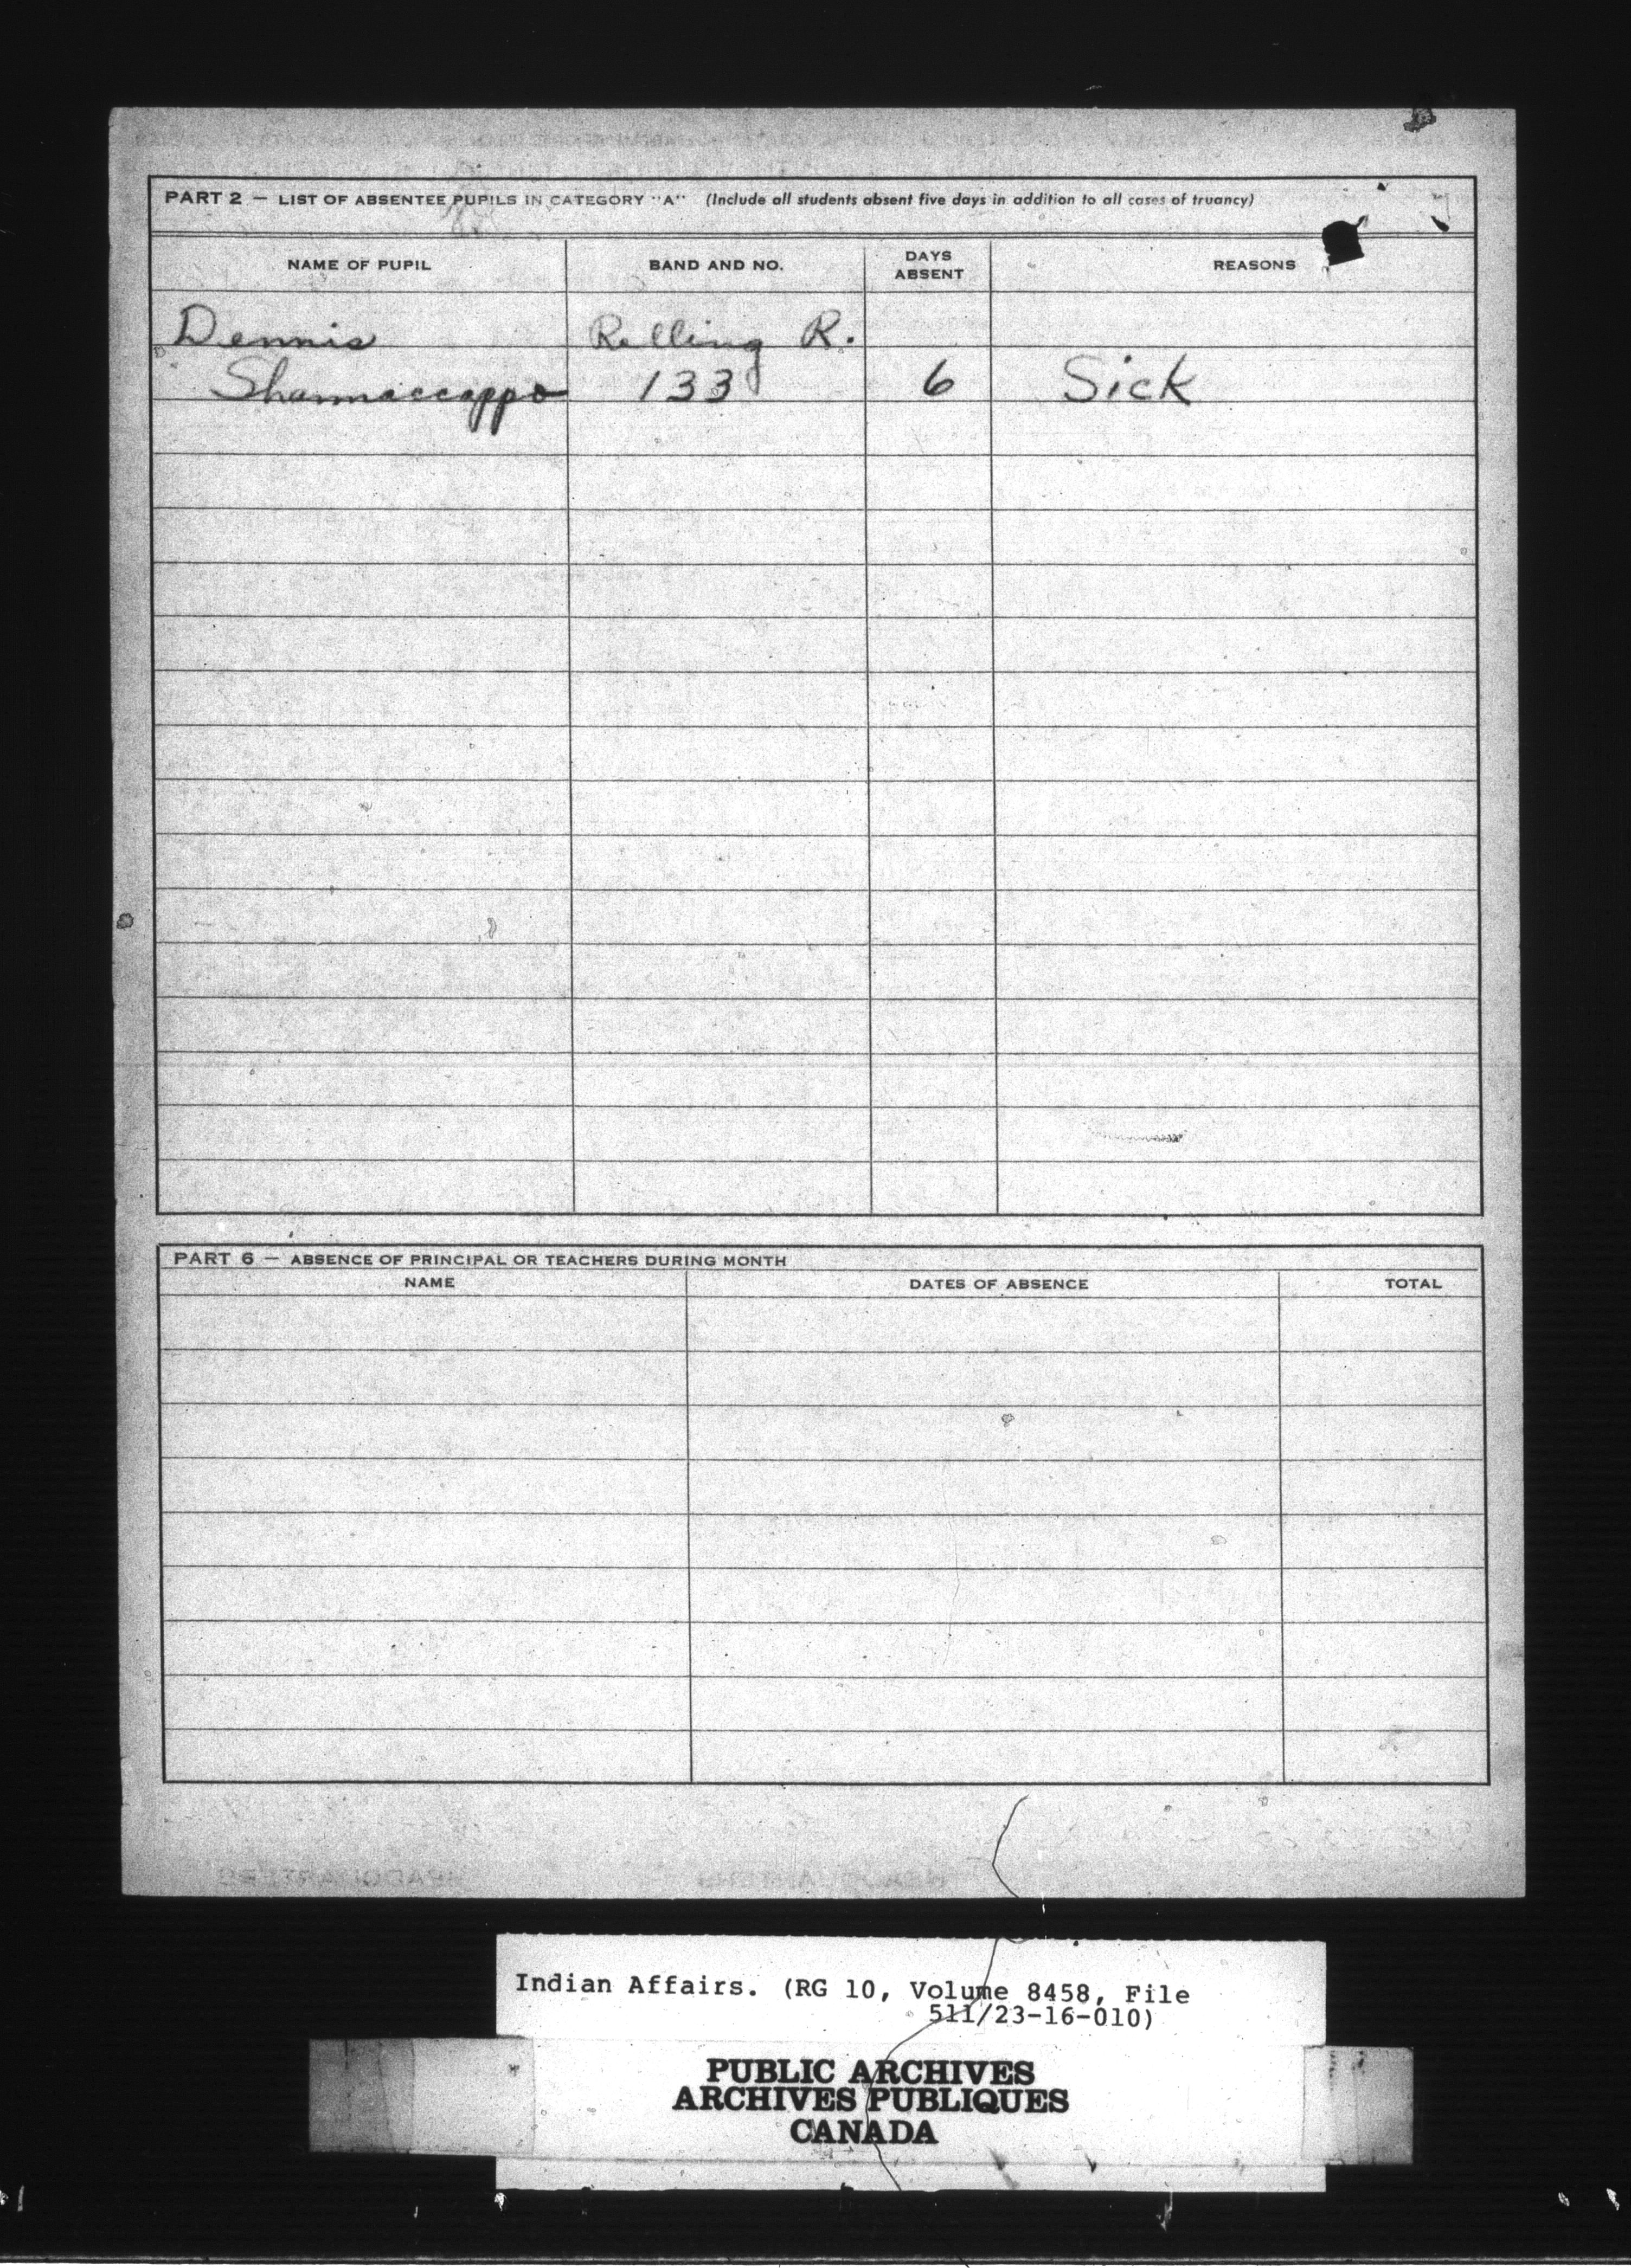 PART 2 — LIST OF ABSENTEE PUPILS IN CATEGORY "A" (Include all students absent five days in addition to all cases of truancy)
NAME OF PUPIL BAND AND NO. DAYS ABSENT REASONS
Dennis Rolling R.
Shannaccappo 133 6 Sick
PART 6 — ABSENCE OF PRINCIPAL OR TEACHERS DURING MONTH
NAME DATES OF ABSENCE TOTAL
Indian Affairs. (RG 10, Volume 8458, File
511/23-16-010)
PUBLIC ARCHIVES
ARCHIVES PUBLIQUES
CANADA